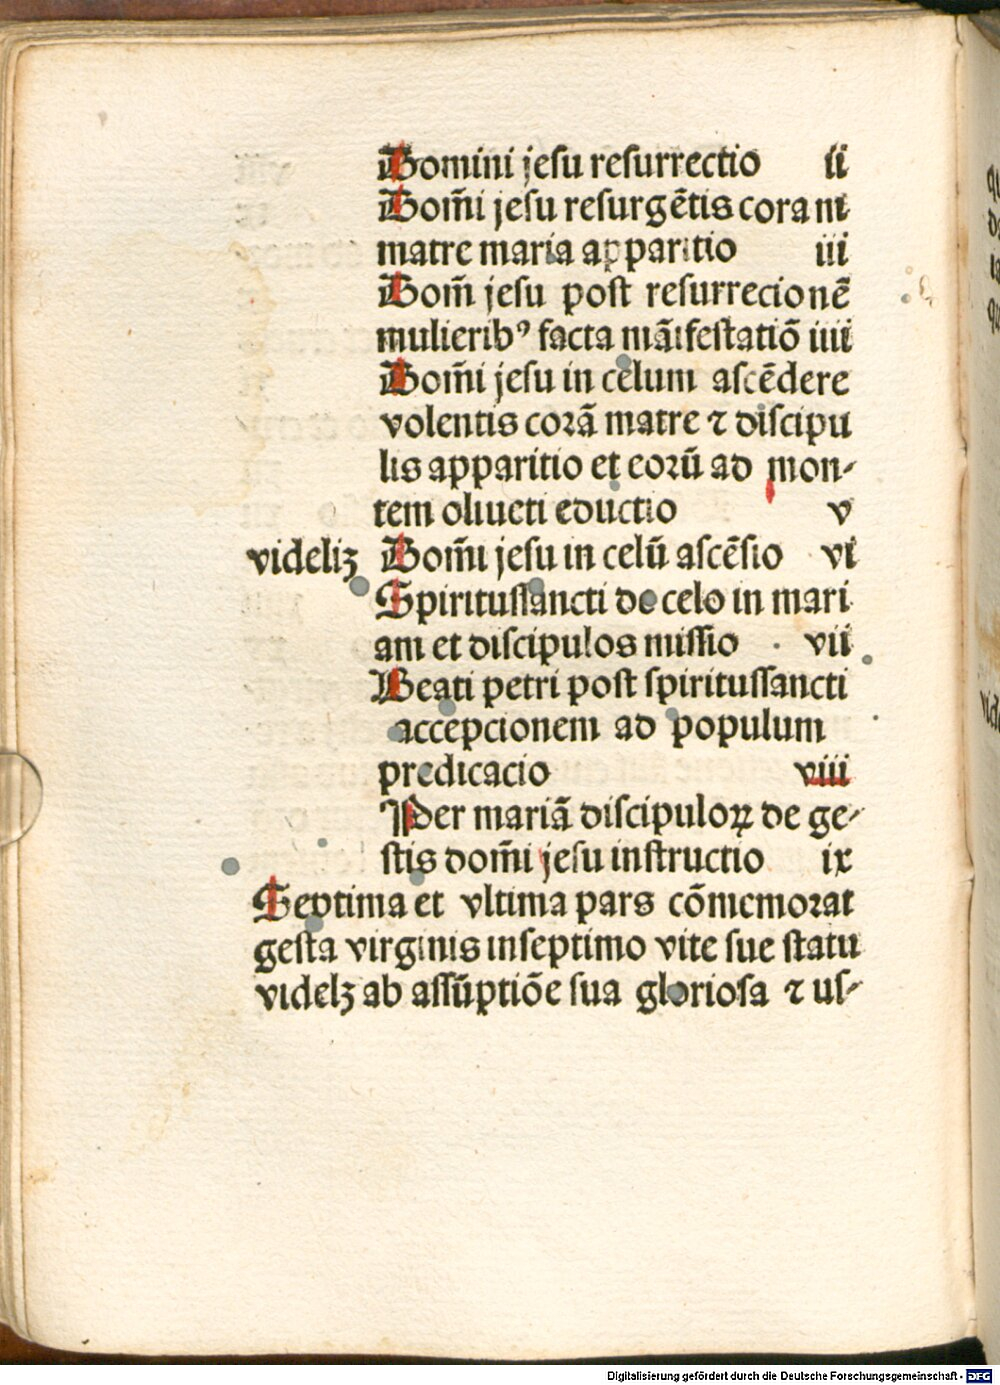 Domini jesu resurrectio ii
Dom̄i jesu resurgētis coram
matre maria apparitio iii
Dom̄ jesu post resurrecionē
mulierib⁹ facta māifestatiō iiii
Dom̄i jesu in celum ascēdere
volentis corā matre ⁊ discipu
lis apparitio et eorū ad mon-
tem oliueti eductio v
videliꝫ Dom̄i jesu in celū ascēsio vi
Spiritussancti de celo in mari
am et discipulos missio vii
Beati petri post spiritussancti
accepcionem ad populum
predicacio viii
Per mariā discipuloꝝ de ge-
stis dom̄i jesu instructio ix
Septima et vltima pars cōmemorat
gesta virginis inseptimo vite sue statu
videlꝫ ab assūptiōe sua gloriosa ⁊ us-
Digitalisierung gefördert durch die Deutsche Forschungsgemeinschaft - DFG